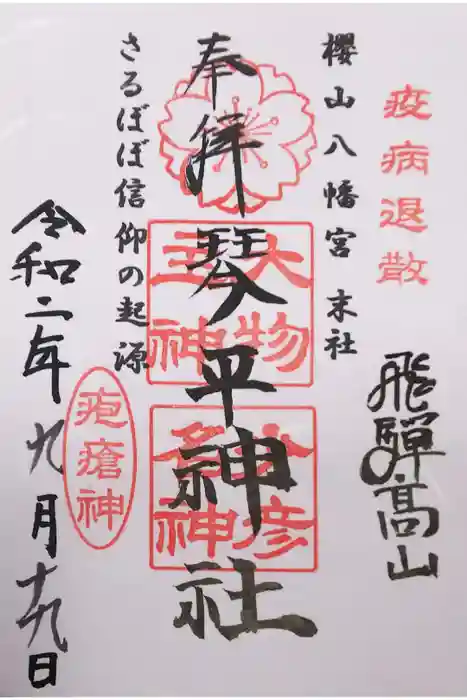 疫病退散
飛騨高山
櫻山八幡宮 末社
奉拝
琴平神社
大物主神
少彦名神
さるぼぼ信仰の起源
疱瘡神
令和二年九月十九日